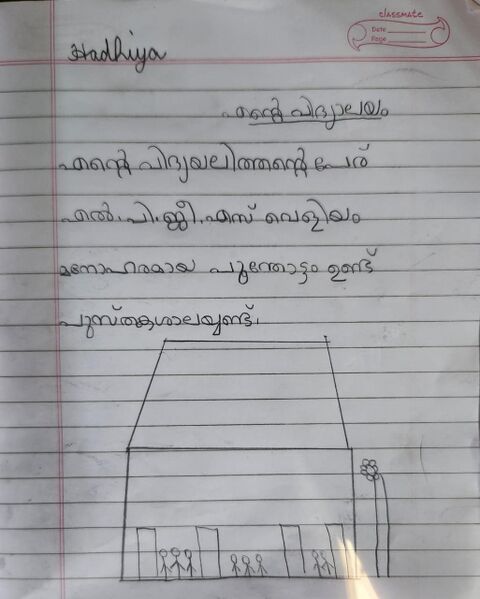 classmate
Date
Page
Hadhiya
എന്റെ വിദ്യാലയം
എന്റെ വിദ്യയലിത്തന്റെ പേര്
എൽ.പി.ജി.എസ് വെളിയം
മനോഹരമായ പൂന്തോട്ടം ഉണ്ട്
പുസ്തകശാലയുണ്ട്.